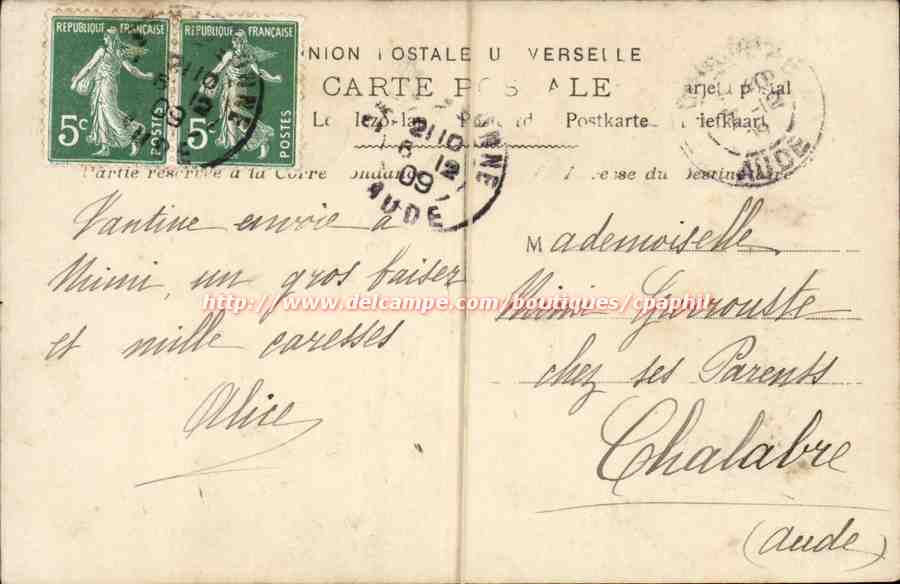 RÉPUBLIQUE FRANÇAISE
5c
POSTES
RÉPUBLIQUE FRANÇAISE
5c
POSTES
NION POSTALE U VERSELLE
CARTE POS ALE
Postkarte riefkaart
21 10
6 12
09
AUDE
AUDE
Partie réservée à la Corre
esse du Destinataire
Vantine envoie à
Mimi, un gros baiser
et mille caresses
Alice
Mademoiselle
Mimi Garrouste
chez ses Parents
Chalabre
(Aude)
http://www.delcampe.com/boutiques/cpaphil